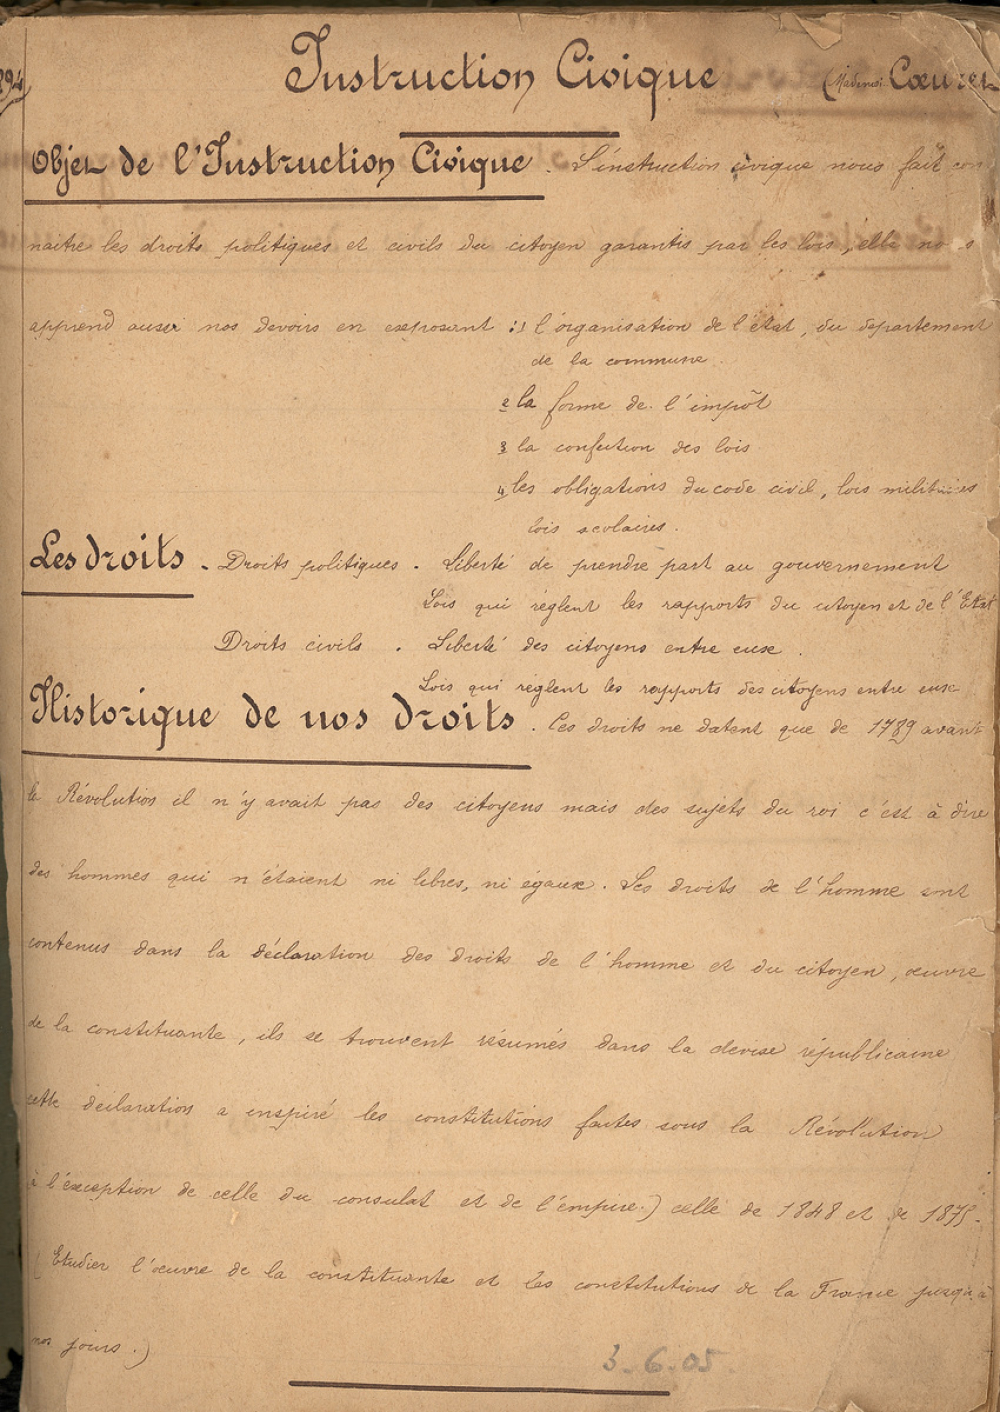 894
Instruction Civique (Mademoi Cœuret
Objet de l'Instruction Civique. L'instruction civique nous fait con
naitre les droits politiques et civils du citoyen garantis par les lois, elle nous
apprend aussi nos devoirs en exposant : 1 l'organisation de l'état, du département
de la commune.
2 la forme de l'impôt
3 la confection des lois
4 les obligations du code civil, lois militaires
lois scolaires.
Les droits. Droits politiques. Liberté de prendre part au gouvernement
Lois qui règlent les rapports du citoyen et de l'Etat
Droits civils. Liberté des citoyens entre eux.
Lois qui règlent les rapports des citoyens entre eux
Historique de nos droits. Ces droits ne datent que de 1789 avant
la Révolution il n'y avait pas des citoyens mais des sujets du roi c'est à dire
des hommes qui n'étaient ni libres, ni égaux. Les droits de l'homme sont
contenus dans la déclaration des droits de l'homme et du citoyen, œuvre
de la constituante, ils se trouvent résumés dans la devise républicaine
cette déclaration a inspiré les constitutions faites sous la Révolution
à l'exception de celle du consulat et de l'empire.) celle de 1848 et de 1875.
(Etudier l'œuvre de la constituante et les constitutions de la France jusqu'à
nos jours.)
3-6-05